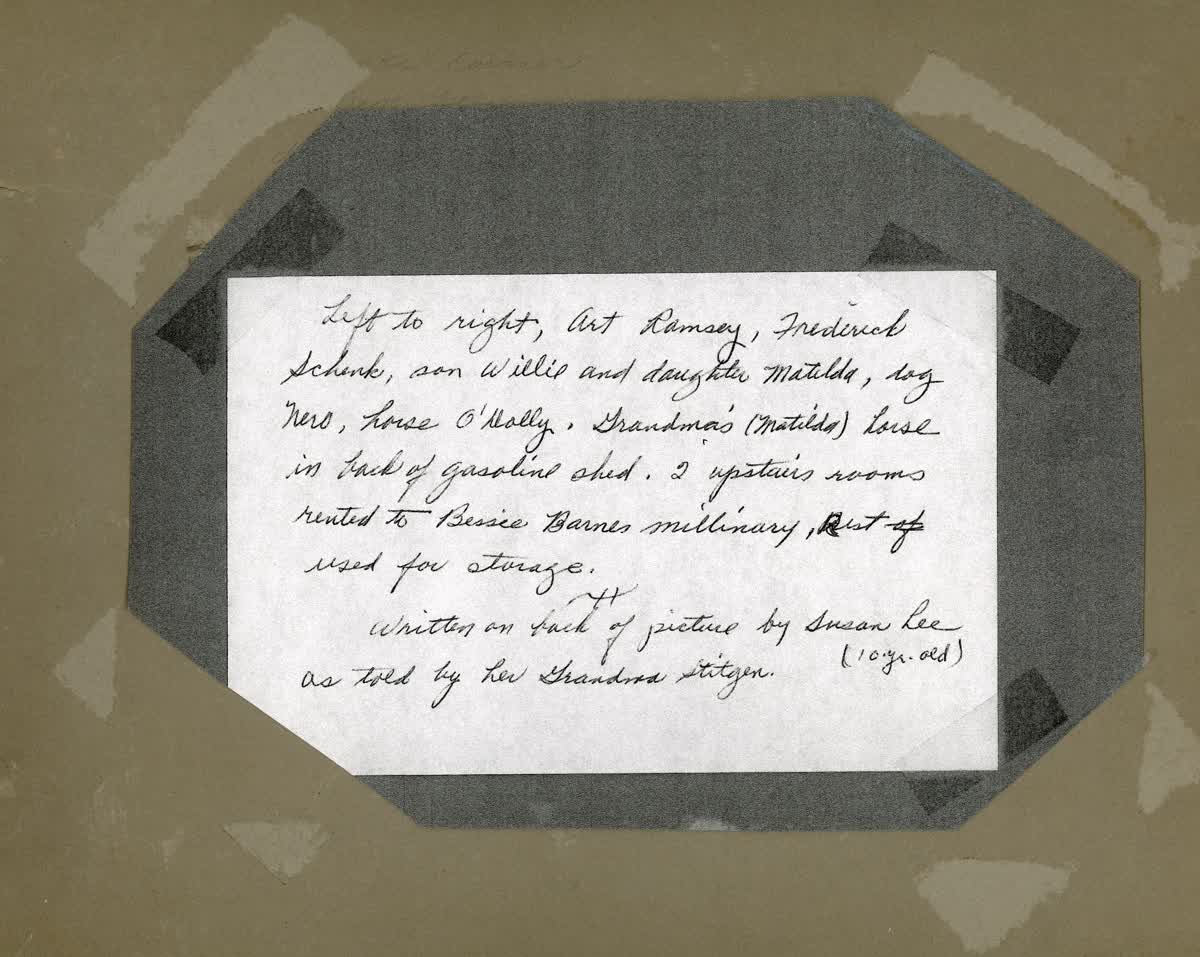 Left to right, Art Ramsey, Frederick
Schenk, son Willie and daughter Matilda, dog
Nero, horse O'Dolly. Grandma's (Matilda) horse
in back of gasoline shed. 2 upstairs rooms
rented to Bessie Barnes millinary, Rest of
used for storage.
Written on back of picture by Susan Lee
(10-yr. old)
as told by her Grandma Stitgen.